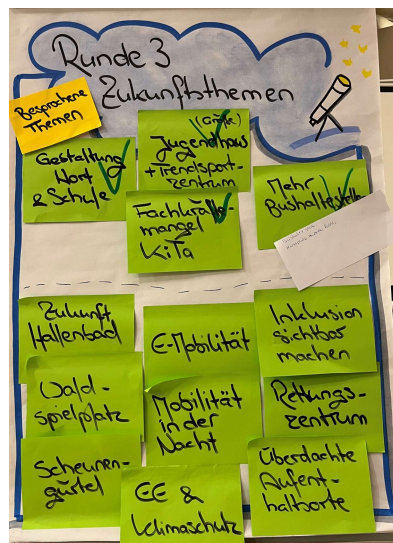 Runde 3
Zukunftsthemen
Besprochene
Themen
Gestaltung
Hort
& Schule
(Große)
Jugendhaus
+ Trendsport-
zentrum
Fachkräfte-
mangel
KiTa
Mehr
Bushaltestelle
Zukunft
Hallenbad
E-Mobilität
Inklusion
sichtbar
machen
Wald-
spielplatz
Mobilität
in der
Nacht
Rettungs-
zentrum
Scheunen-
gürtel
EE &
Klimaschutz
Überdachte
Aufent-
haltsorte